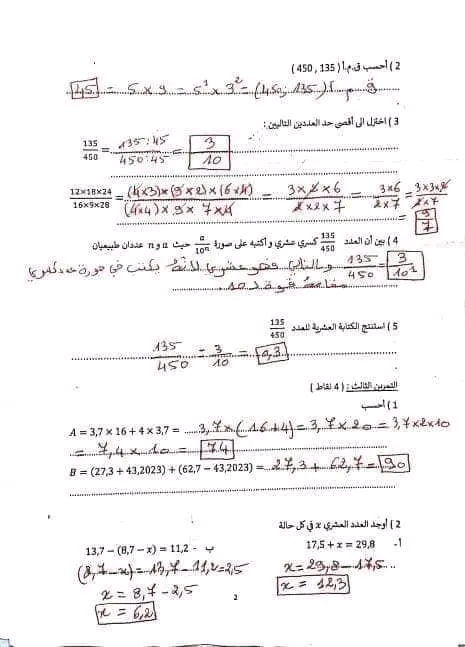 2 ) أحسب ق.م.أ ( 135 , 450 )
ق م أ (135 ; 450) = 3² × 5¹ = 9 × 5 = 45
3 ) اختزل الى أقصى حد العددين التاليين :
135/450 = 135:45/450:45 = 3/10
12×18×24/16×9×28 = (4×3)×(9×2)×(6×4)/(4×4)×9×7×4 = 3×2×6/2×2×7 = 3×6/2×7 = 3×3×2/2×7
= 9/7
4 ) بين أن العدد 135/450 كسري عشري و أكتبه على صورة a/10ⁿ حيث a و n عددان طبيعيان
135/450 = 3/10¹ وبالتالي فهو عشري لأنه يكتب في صورة عدد كسري
مقامه قوة لـ 10.
5 ) استنتج الكتابة العشرية للعدد 135/450
135/450 = 3/10 = 0,3
التمرين الثالث : ( 4 نقاط )
1 ) أحسب
A = 3,7 × 16 + 4 × 3,7 = 3,7 × (16+4) = 3,7 × 20 = 3,7×2×10
= 7,4 × 10 = 74
B = (27,3 + 43,2023) + (62,7 − 43,2023) = 27,3 + 62,7 = 90
2 ) أوجد العدد العشري x في كل حالة
أ- 17,5 + x = 29,8
ب - 13,7 − (8,7 − x) = 11,2
x = 29,8 − 17,5
x = 12,3
(8,7 − x) = 13,7 − 11,2 = 2,5
x = 8,7 − 2,5
x = 6,2
2